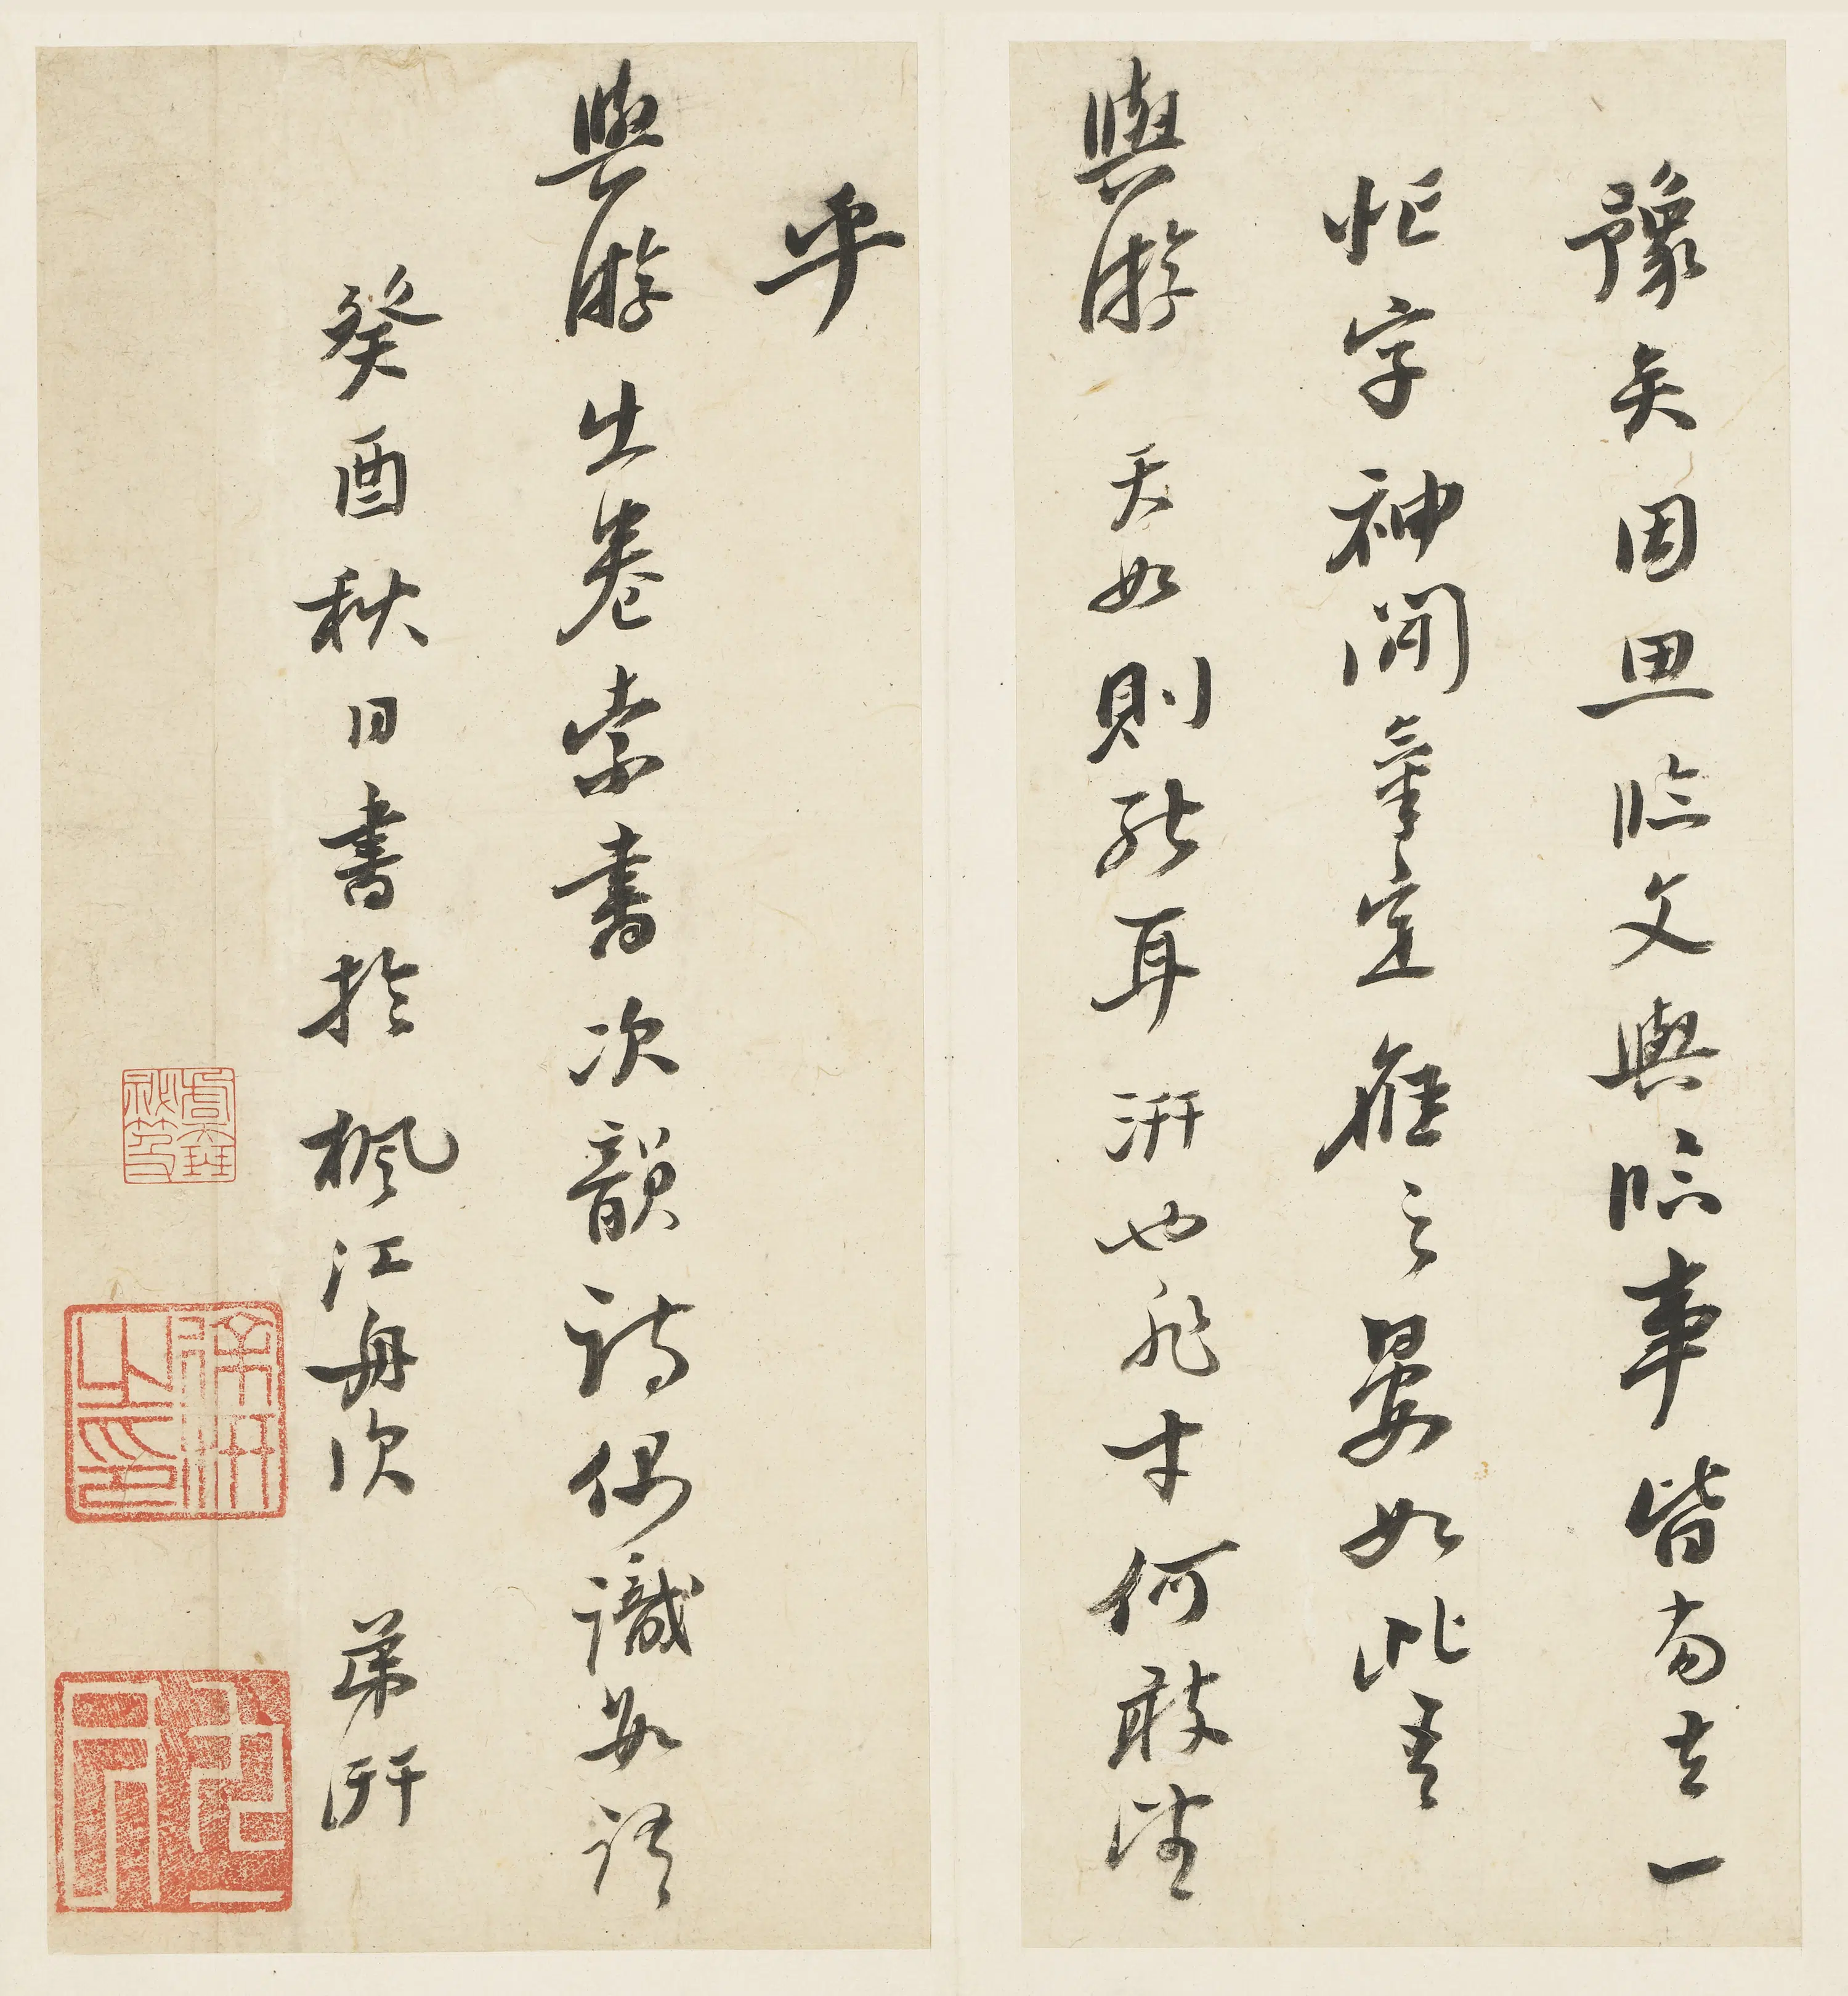 豫矣因思臨文與臨事皆當去一
忙字神閒定應之晏如此吾
與游 天如則能耳 汧也非才何敢望
乎
與游出卷索書次韻詩偶識數語
癸酉秋日書於楓江舟次 弟汧
徐汧之印